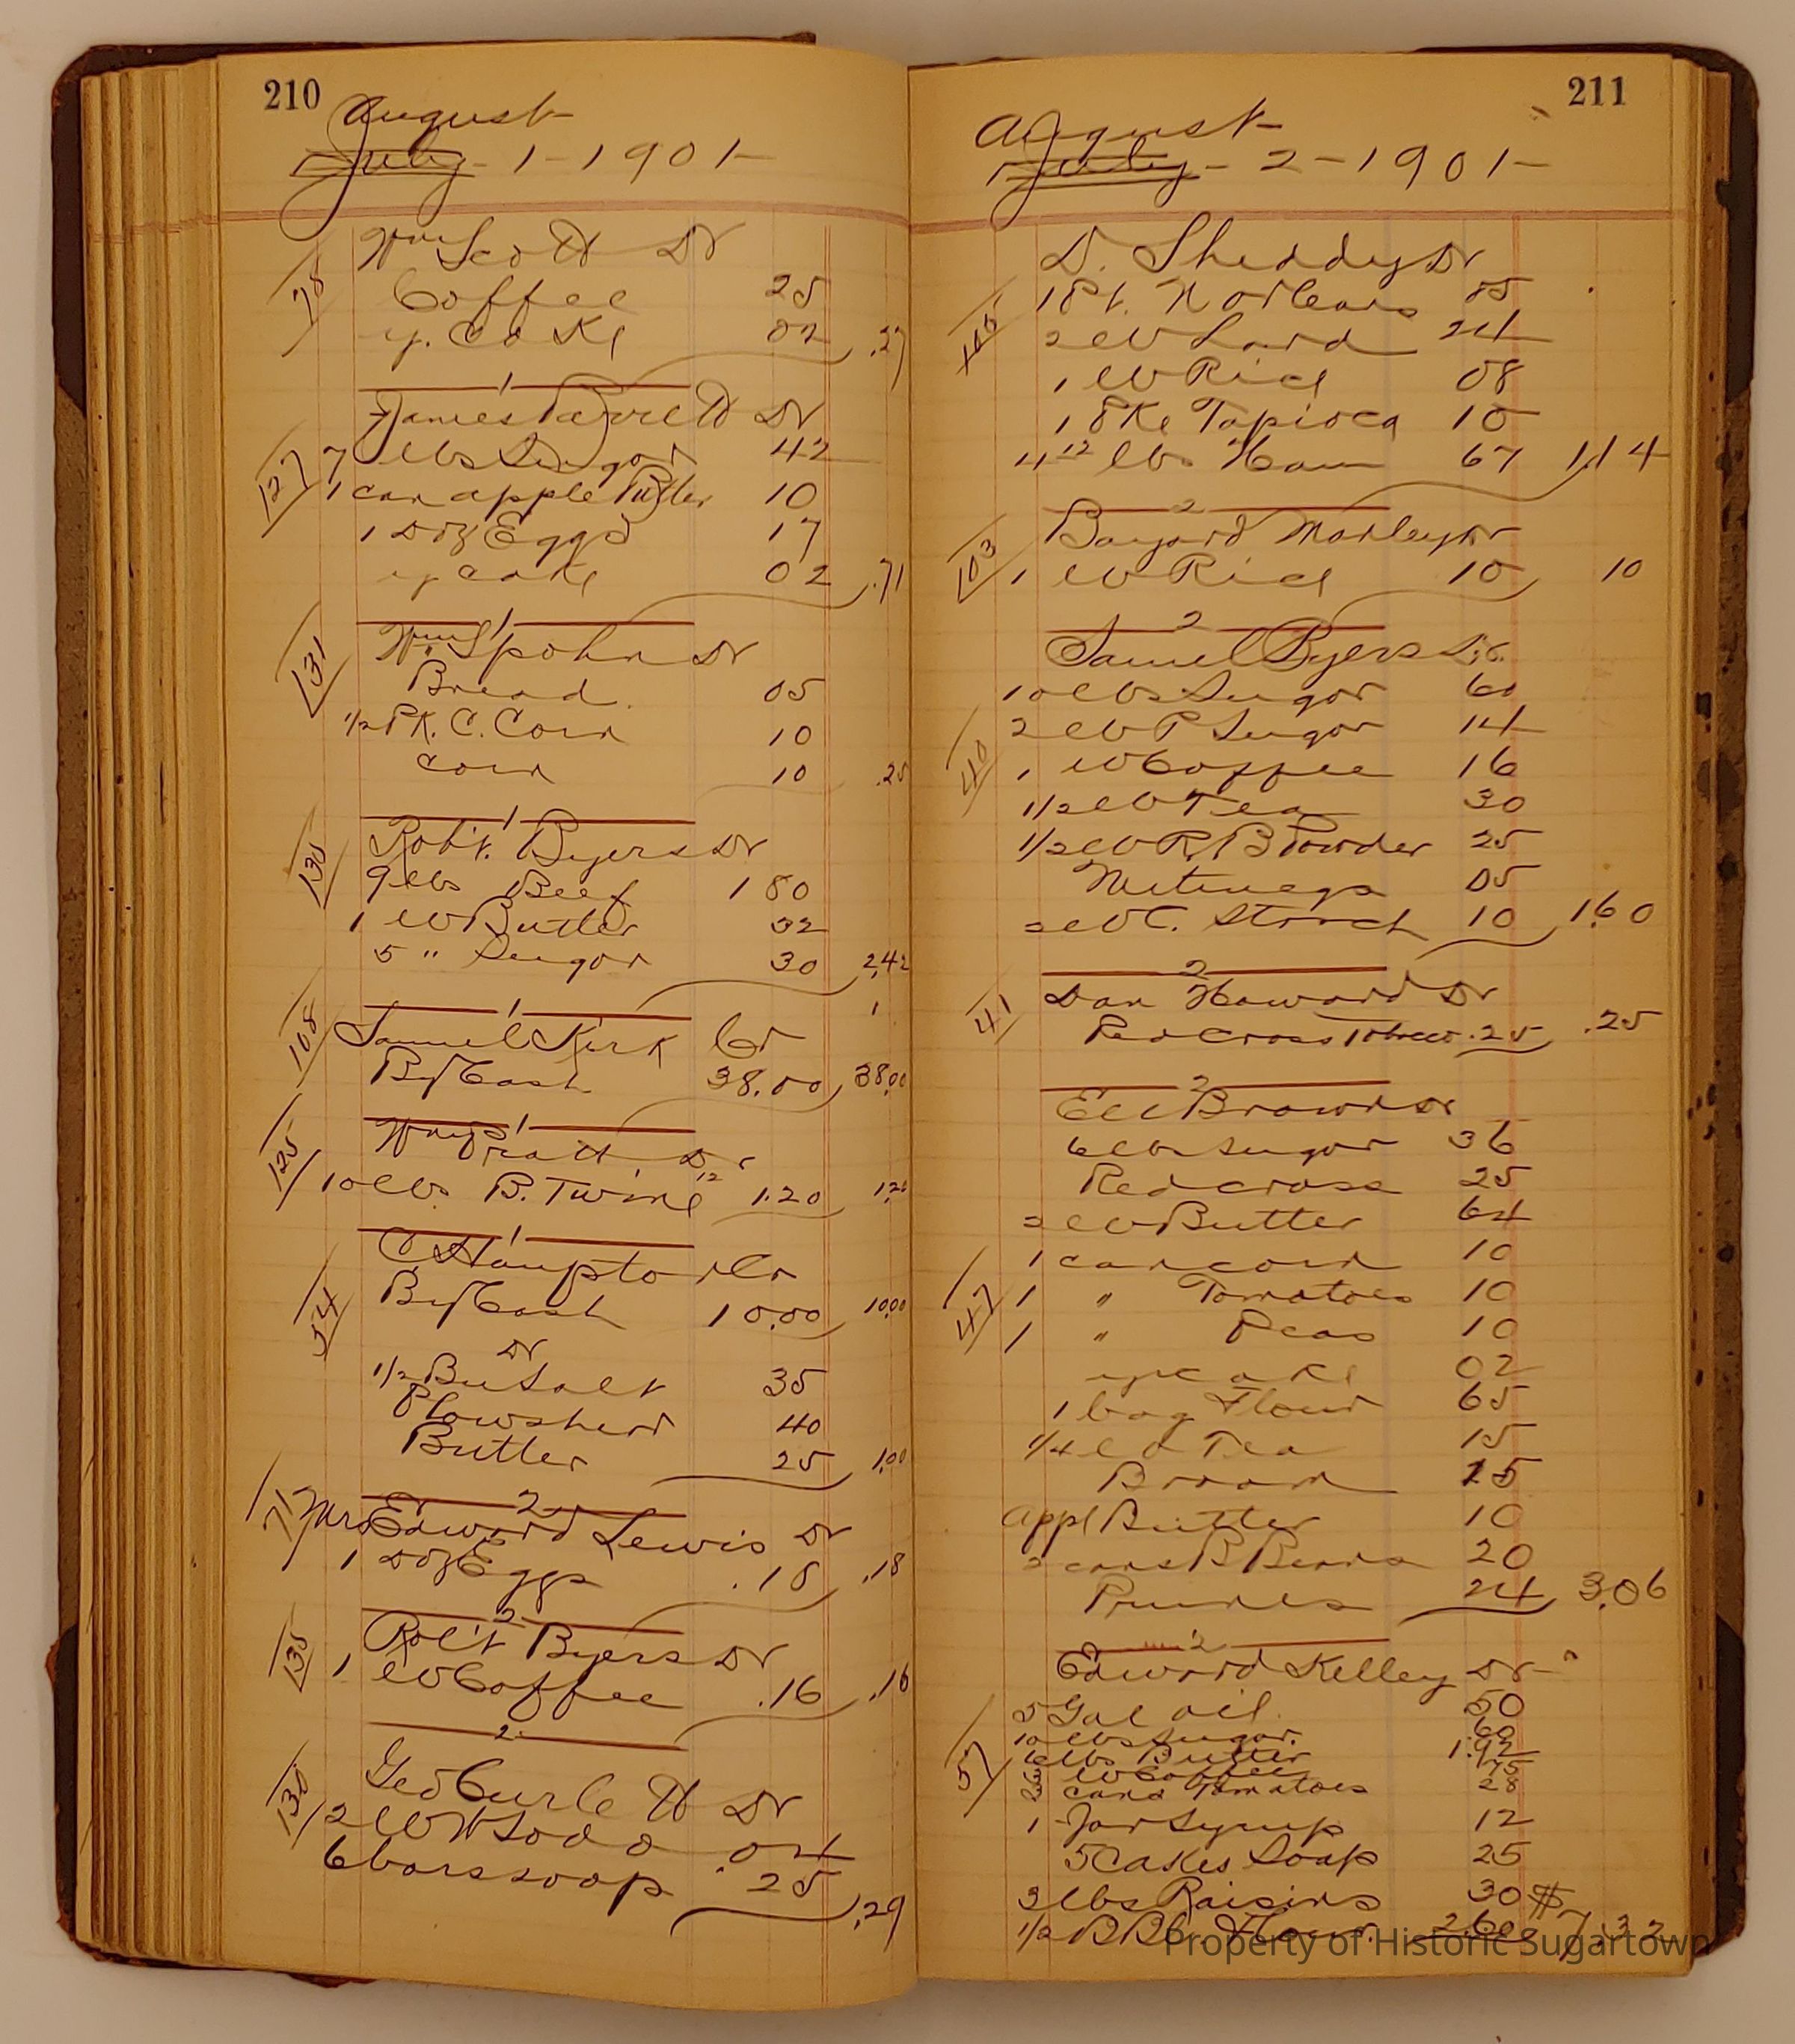 210
August
July - 1 - 1901 -
Wm Scott Dr
78
Coffee 25
y. Cake 02 .27
1
James Parrett Dr
127
7 lbs Sugar 42
1 can apple Butter 10
1 Doz Eggs 17
y cake 02 .71
1
131
Wm Spohn Dr
Bread 05
1/2 PK. C. Corn 10
Corn 10 .25
1
135
Rob't. Byers Dr
9 lbs Beef 1 80
1 lb Butter 32
5 " Sugar 30 2.42
1
108
Samuel Kirk Cr
By Cash 38.00 38.00
1
125
Wm Pratt Dr
10 lbs B. Twine 12 1.20 1.20
1
C Hampton Cr
54
By Cash 10.00 10.00
Dr
1/2 Bu Salt 35
Plowsherd 40
Butter 25 1.00
2
71
Mrs Edward Lewis Dr
1 Doz Eggs .18 .18
2
135
Rob't Byers Dr
1 lb Coffee .16 .16
2
130
Geo Burlett Dr
2 lb W Soda .04
6 bars soap .25 .29
211
August
July - 2 - 1901 -
D. Sheddy Dr
1 Pt. N Orleans 05
2 lb Lard 24
1 lb Rice 08
1 Pke Tapioca 10
4 12 lbs Ham 67 1.14
2
103
Bayard Marley Dr
1 lb Rice 10 10
2
Samuel Byers Dr.
10 lbs Sugar 60
40
2 lb P Sugar 14
1 lb Coffee 16
1/2 lb Tea 30
1/2 lb R. B Powder 25
Nutmegs 05
2 lb C. Starch 10 1.60
2
41
Dan Howard Dr
Red Cross Tobacco .25 .25
2
Ell Brown Dr
6 lbs Sugar 36
Red cross 25
2 lb Butter 64
1 can corn 10
47
1 " Tomatoes 10
1 " Peas 10
y cake 02
1 bag Flour 65
1/4 lb Tea 15
Broom 25
appl Butter 10
2 cans B Beans 20
Prunes 24 3.06
2
Edward Kelley Dr
57
5 Gal oil. 50
10 lbs Sugar. 60
6 lbs Butter 1.92
lb Coffee 75
cans Tomatoes 28
1 Jar Syrup 12
5 Cakes Soap 25
3 lbs Raisins 30
1/2 BBl. Flour. 2.60 $7.32
Property of Historic Sugartown